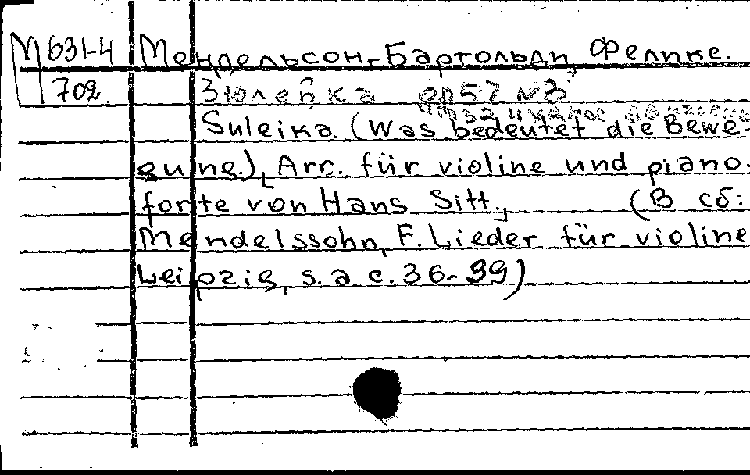 М 631-4 Мендельсон-Бартольди, Феликс.
702 Зюлейка ор 57 №3
Suleika (Was bedeutet die Bewe-
gung), Arr. für violine und piano-
forte von Hans Sitt, (В сб:
Mendelssohn, F. Lieder für violine
Leipzig, s. a c. 36-39)